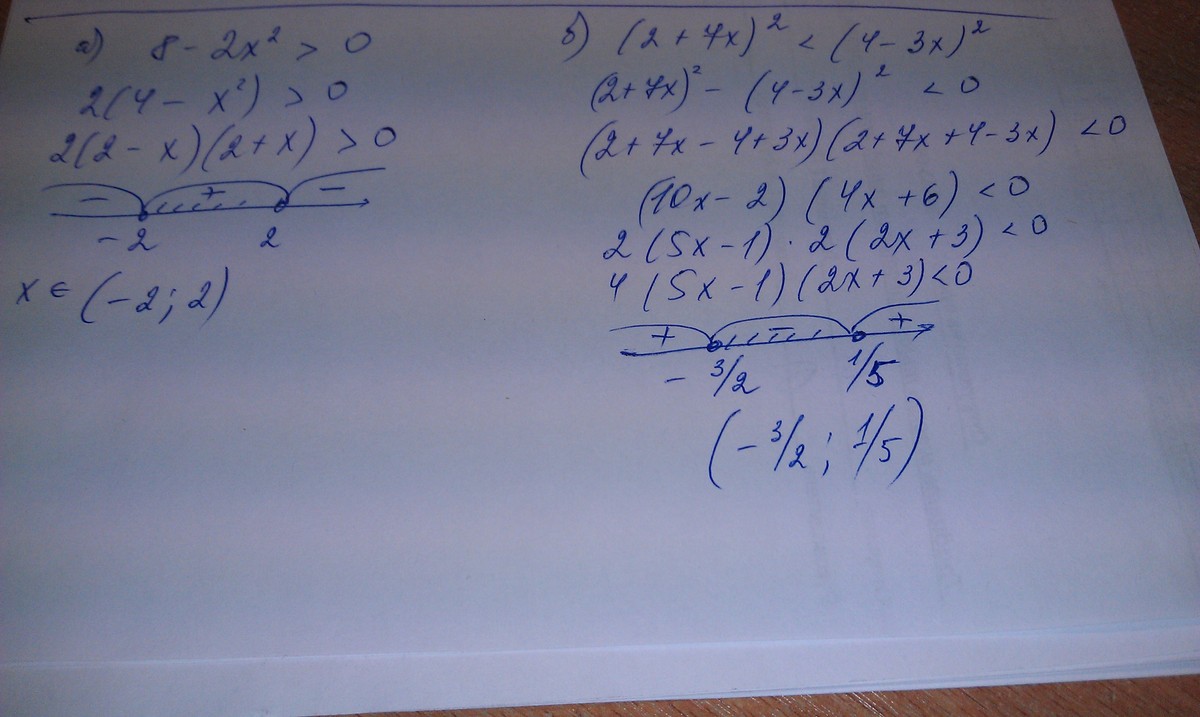 а) 8 - 2x² > 0
2(4 - x²) > 0
2(2 - x)(2 + x) > 0
- + -
-2 2
x ∈ (-2; 2)
б) (2 + 7x)² < (4 - 3x)²
(2+7x)² - (4-3x)² < 0
(2+7x - 4+3x)(2+7x+4-3x) < 0
(10x - 2) (4x + 6) < 0
2 (5x - 1) · 2 (2x + 3) < 0
4 (5x - 1)(2x + 3) < 0
+ - +
- 3/2 1/5
(- 3/2 ; 1/5)